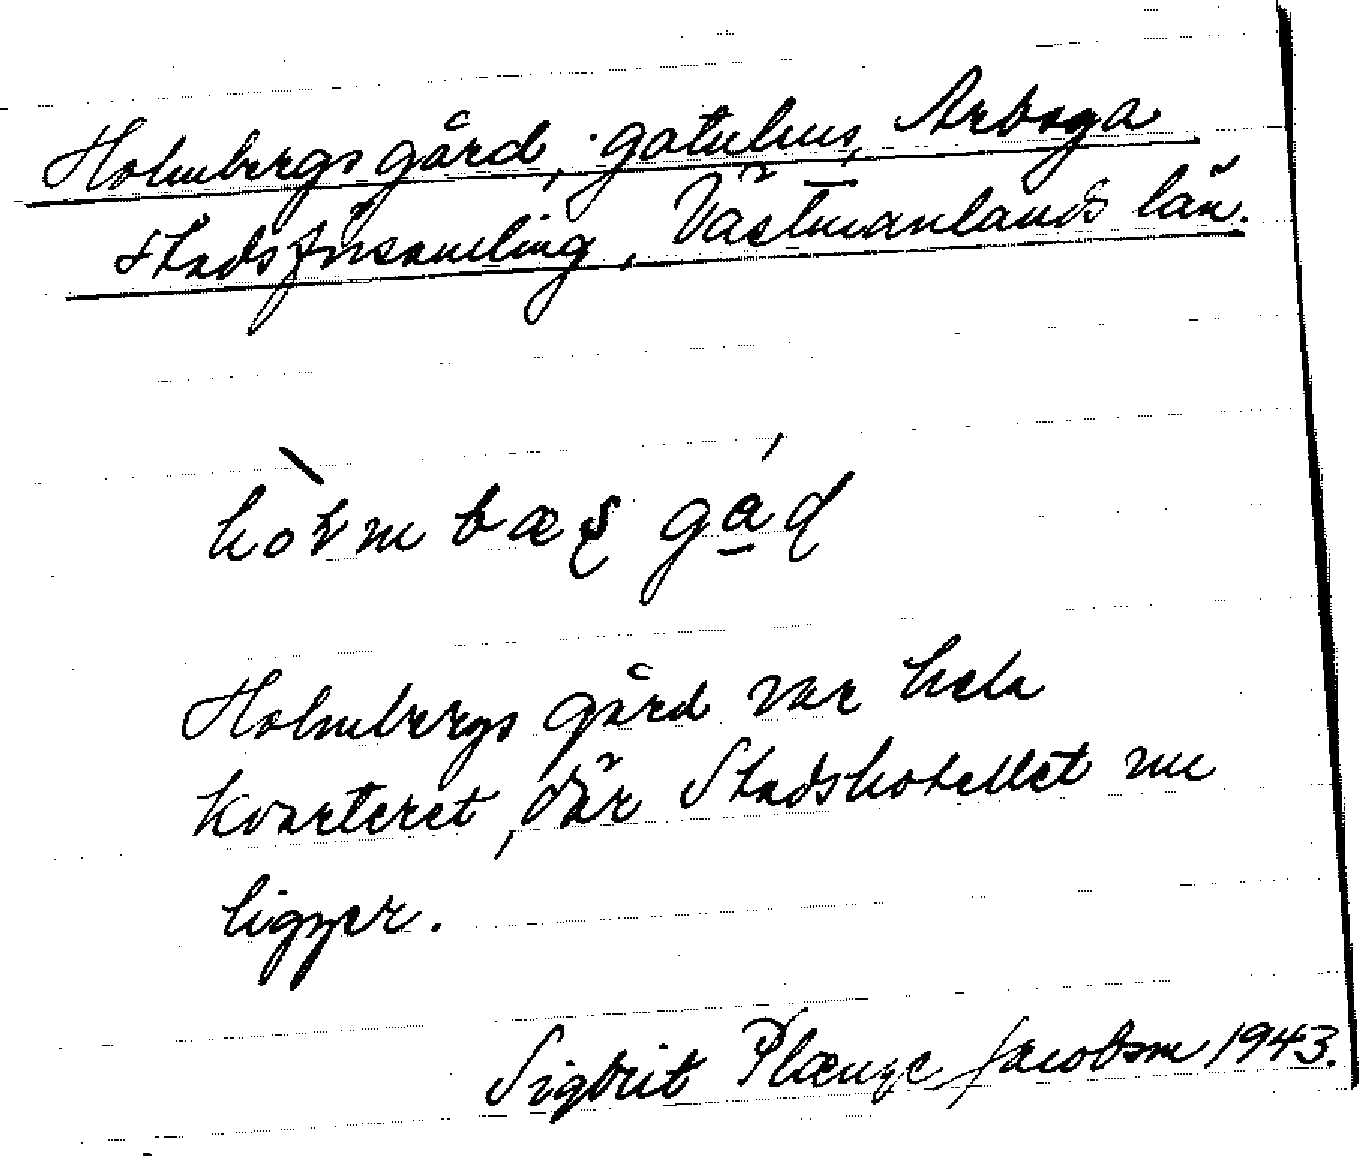 Holmbergs gård, gatuhus, Arboga
stadsförsamling, Västmanlands län.
Holmbergs gård var hela
kvarteret, där Stadshotellet nu
ligger.
Sigbrit Plænge Jacobson 1943.